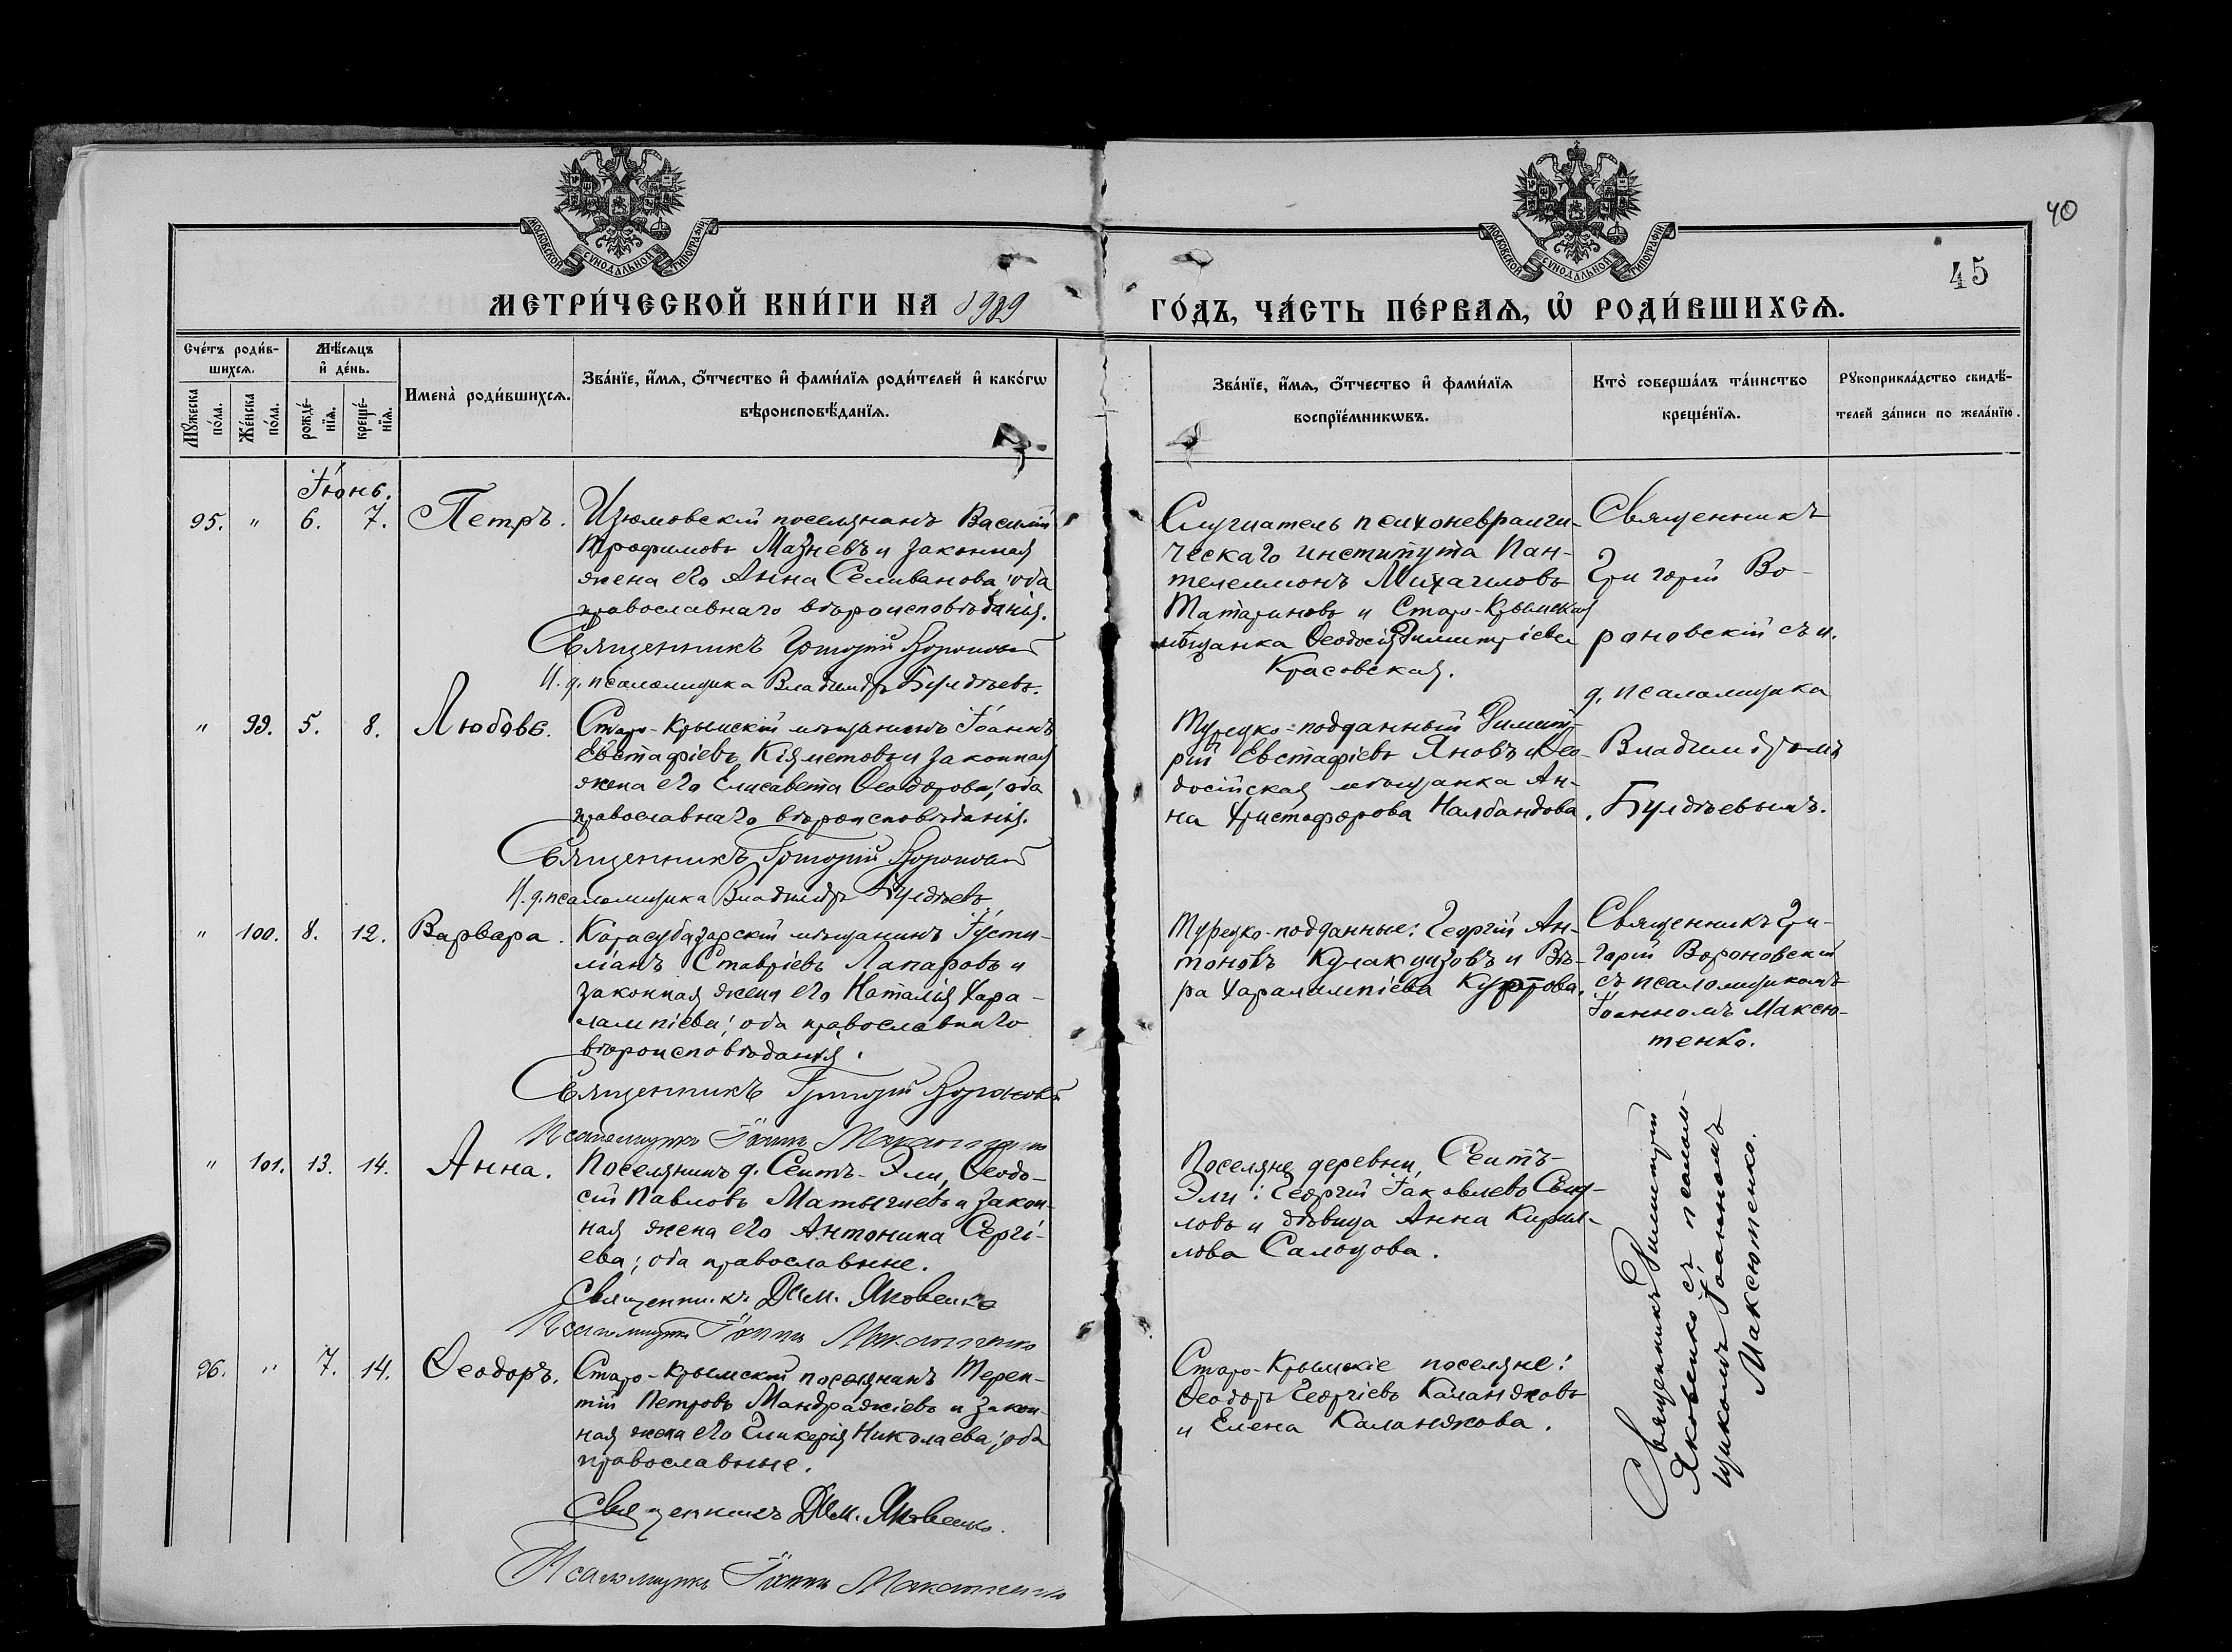 40
45
МОСКОВСКОЙ СУНОДАЛЬНОЙ ТИПОГРАФІИ
МОСКОВСКОЙ СУНОДАЛЬНОЙ ТИПОГРАФІИ
МЕТРИ́ЧЕСКОЙ КНИ́ГИ НА
ГО́ДЪ, ЧА́СТЬ ПЕ́РВАѦ, Ѡ҆ РОДИ́ВШИХСѦ.
Сче́тъ роди́в-
шихсѧ.
Мѣ́сѧцъ
и҆ де́нь.
Мꙋ́жеска
по́ла.
Же́нска
по́ла.
рожде́-
нїѧ.
креще́-
нїѧ.
Имена̀ роди́вшихсѧ.
Зва́нїе, и҆́мѧ, ѻ҆́тчество и҆ фами́лїѧ роди́телей и҆ како́гѡ
вѣроисповѣ́данїѧ.
Зва́нїе, и҆́мѧ, ѻ҆́тчество и҆ фами́лїѧ
воспрїе́мникѡвъ.
Кто̀ соверша́лъ та́инство
креще́нїѧ.
Рꙋкоприкла́дство свидѣ́-
телей за́писи по жела́нїю.
Іюнь.
95. " 6. 7. Петръ.
Изюмовскій поселянинъ Василій
Трофимовъ Мазневъ и законная
жена его Анна Селиванова; оба
православнаго вѣроисповѣданія.
Священникъ Григорій Вороновскій
И. д. псаломщика Владиміръ Булдѣевъ.
Слушатель психоневралги-
ческаго института Пан-
телеимонъ Михаиловъ
Татариновъ и Старо-Крымская
мѣщанка Ѳеодосія Димитріева
Красовская.
Священникъ
Григорій Во-
роновскій съ и.
д. псаломщика
Владиміромъ
Булдѣевымъ.
" 99. 5. 8. Любовь.
Старо-Крымскій мѣщанинъ Іоаннъ
Евстафіевъ Кіяметовъ и законная
жена его Елисавета Ѳеодорова; оба
православнаго вѣроисповѣданія.
Священникъ Григорій Вороновскій
И. д. псаломщика Владиміръ Булдѣевъ
Турецко-подданный Димит-
рій Евстафіевъ Яновъ и Ѳео-
досійская мѣщанка Ан-
на Христофорова Налбандова.
" 100. 8. 12. Варвара.
Карасубазарскій мѣщанинъ Іусти-
ніанъ Ставріевъ Лапаровъ и
законная жена его Наталія Хара-
лампіева; оба православнаго
вѣроисповѣданія.
Священникъ Григорій Вороновскій
Псаломщикъ Іоаннъ Максютенко
Турецко-подданные: Георгій Ан-
тоновъ Кулакцизовъ и Вѣ-
ра Харалампіева Куртова.
Священникъ Гри-
горій Вороновскій
съ псаломщикомъ
Іоанномъ Максю-
тенко.
" 101. 13. 14. Анна.
Поселянинъ д. Сеитъ-Эли, Ѳеодо-
сій Павловъ Матычиевъ и закон-
ная жена его Антонина Сергі-
ева; оба православные.
Священникъ Дим. Яковенко
Псаломщикъ Іоаннъ Максютенко
Поселяне деревни Сеитъ-
Эли: Георгій Іаковлевъ
ловъ и дѣвица Анна Кирил-
лова Салоцова.
Священникъ Димитрій
Яковенко съ псалом-
щикомъ Іоанномъ
Максютенко.
96. " 7. 14. Ѳеодоръ.
Старо-Крымскій поселянинъ Терен-
тій Петровъ Мандражіевъ и закон-
ная жена его Гликерія Николаева; оба
православные.
Священникъ Дим. Яковенко.
Псаломщикъ Іоаннъ Максютенко
Старо-Крымскіе поселяне:
Ѳеодоръ Георгіевъ Каланжовъ
и Елена Каланжова.